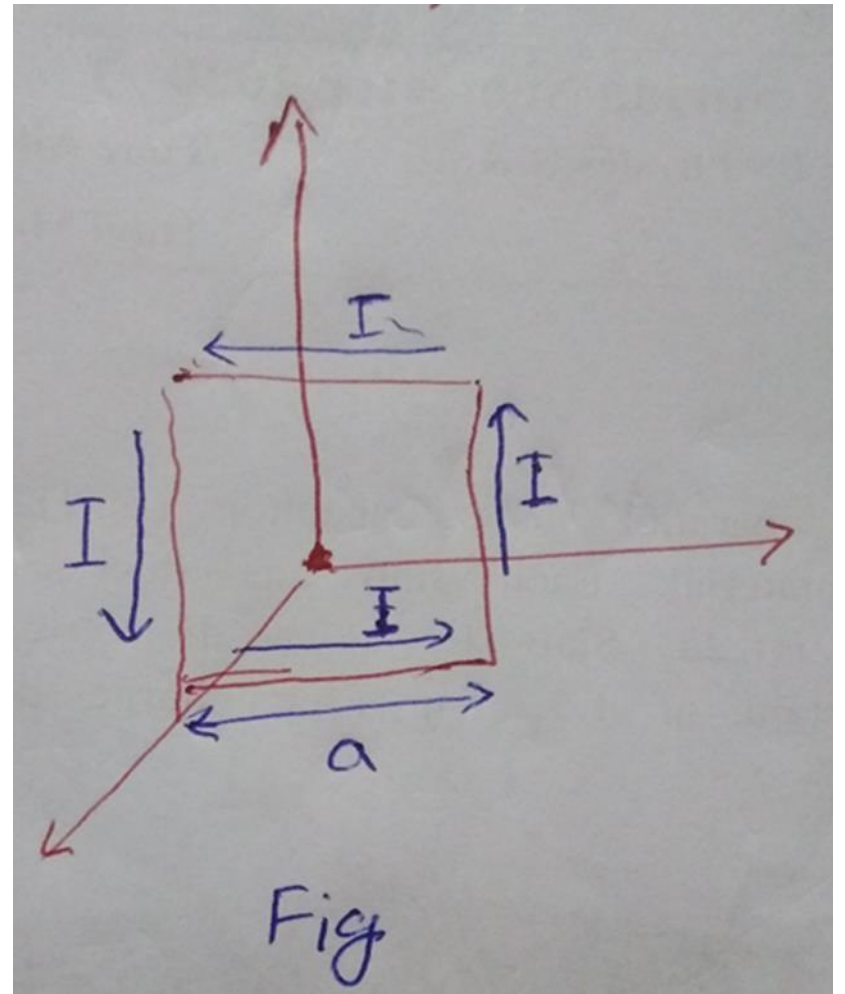 I
I
I
I
a
Fig